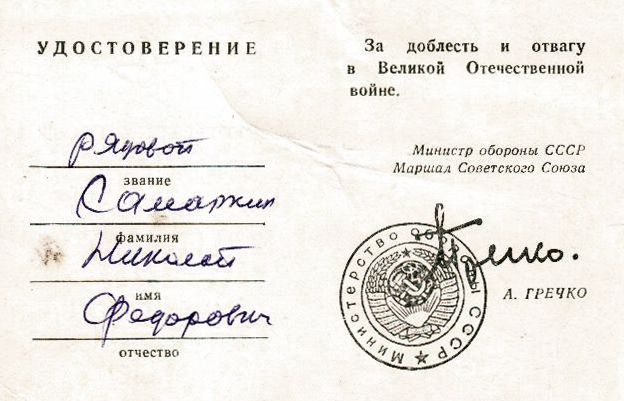 УДОСТОВЕРЕНИЕ
рядовой
звание
Самаркин
фамилия
Николай
имя
Федорович
отчество
За доблесть и отвагу
в Великой Отечественной
войне.
Министр обороны СССР
Маршал Советского Союза
А. ГРЕЧКО
Министерство Обороны СССР